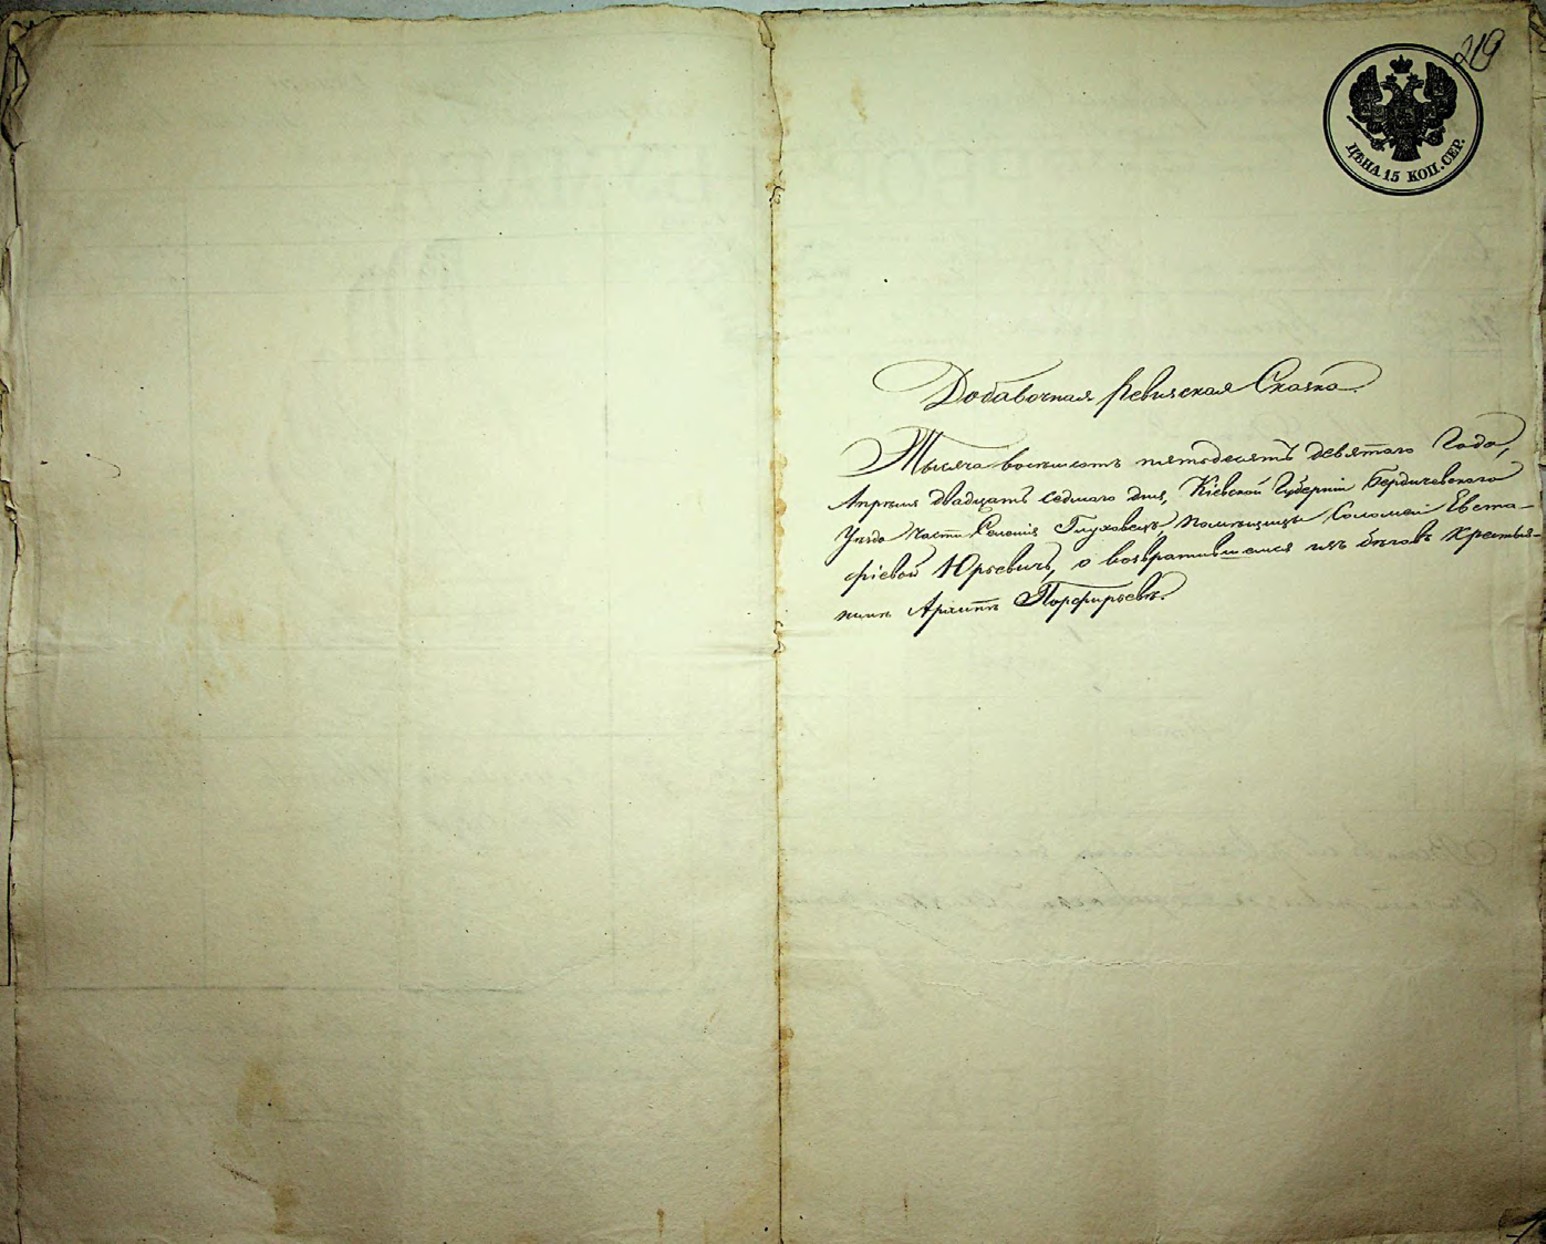 219
ЦѢНА 15 КОП. СЕР.
Добавочная Ревизская Сказка.
Тысяча восемьсотъ пятьдесятъ девятого Года,
Апрѣля двадцать седмого дня, Кіевской Губерніи Бердичевского
Уѣзда части Селенія Глуховецъ, помѣщицы Соломеи Евста-
фіевой Юрьевичъ, о возвратившемся изъ бѣговъ крестья-
нинѣ Архипѣ Порфирьевѣ.